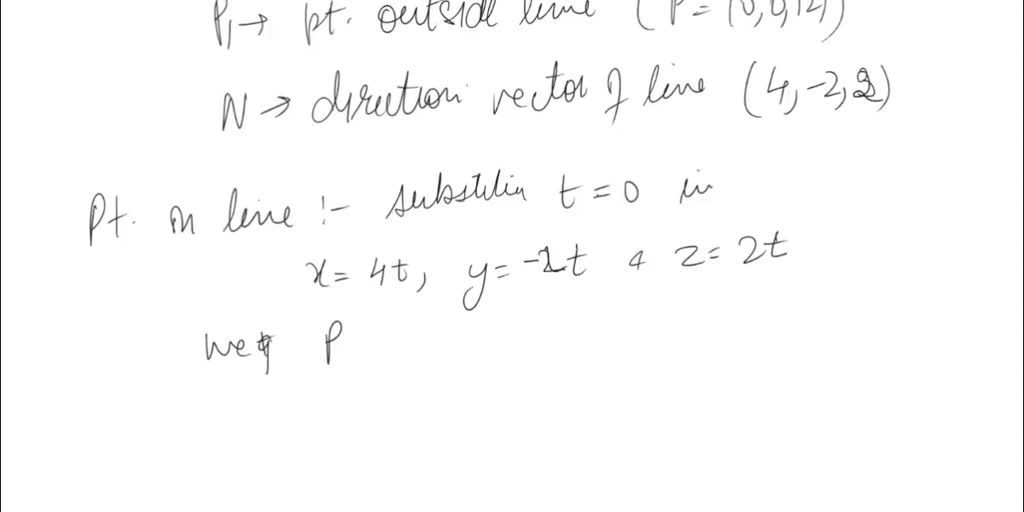 P₁→ pt. outside line (P = (0,0,12)
N → direction vector of line (4,-2,2)
Pt. on line :- substitutin t=0 in
x=4t, y=-2t & z=2t
we P